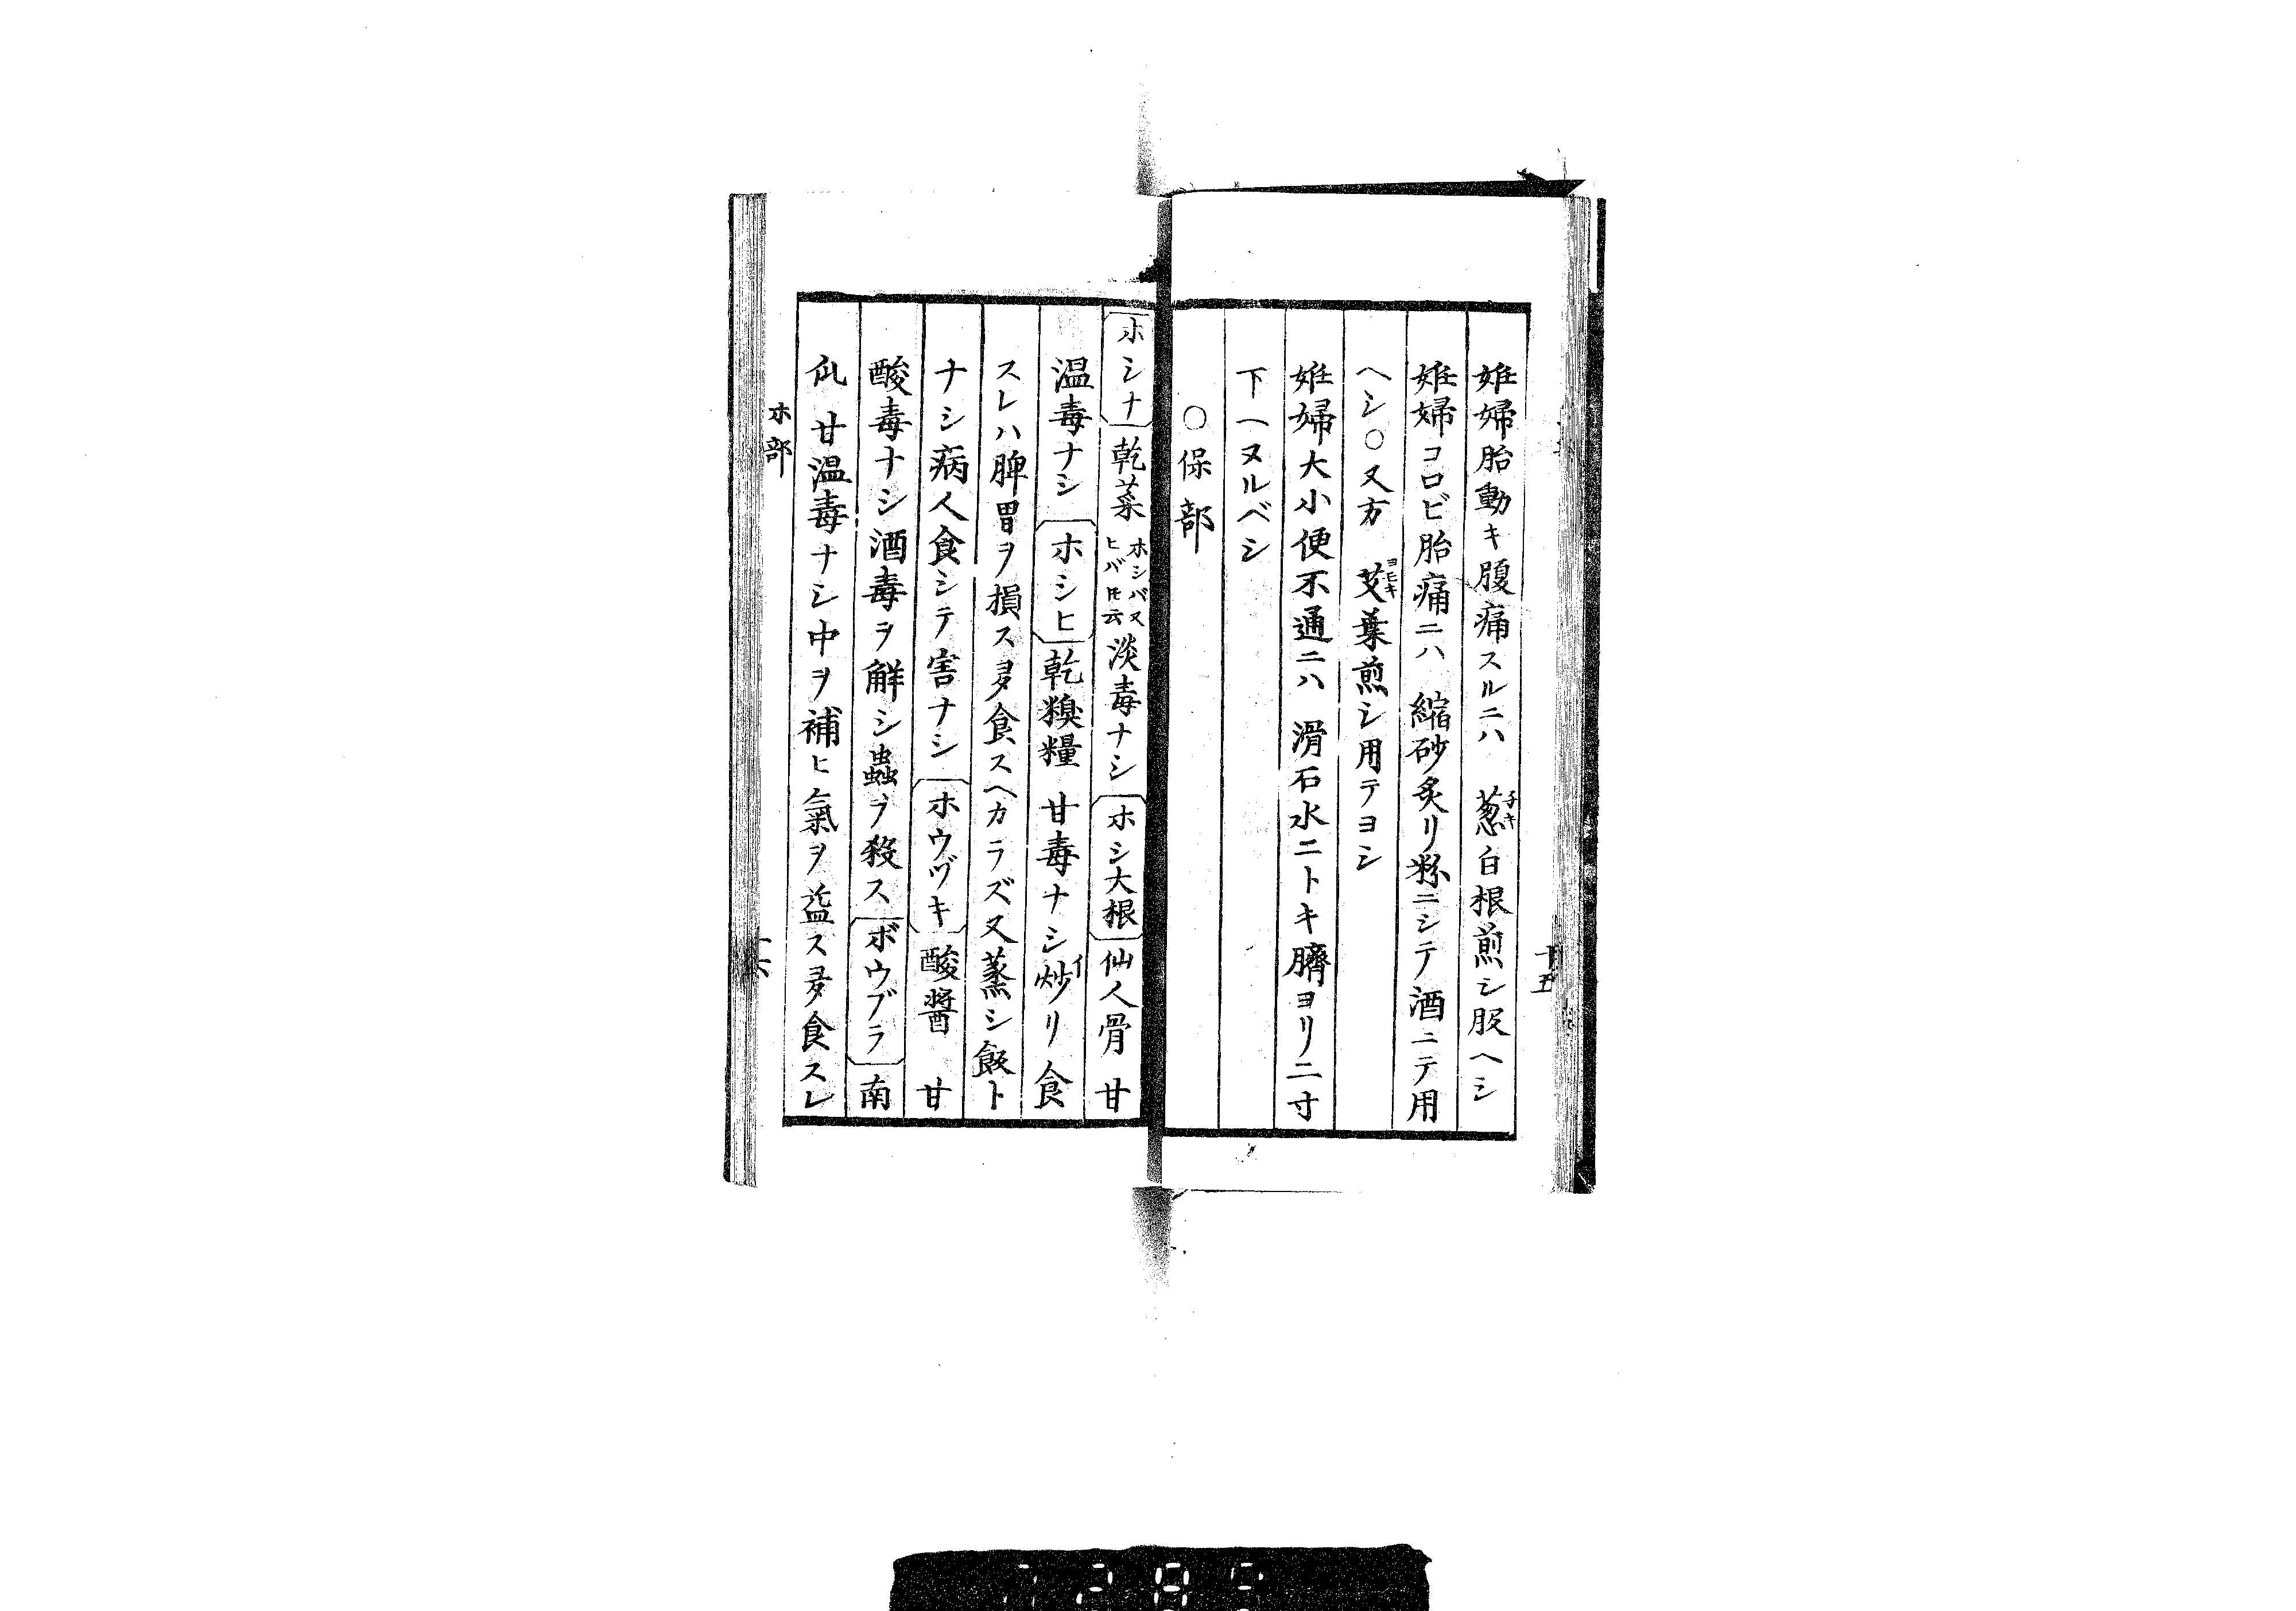 姙婦胎動キ腹痛スルニハ 葱白根煎シ服ヘシ
ネキ
姙婦コロビ胎痛ニハ 縮砂炙リ粉ニシテ酒ニテ用
ヘシ○又方 艾葉煎シ用テヨシ
ヨモキ
姙婦大小便不通ニハ 滑石水ニトキ臍ヨリ二寸
下ヘヌルベシ
○保部
十五
ホシナ 乾菜 ホシバ又ヒバ𪜈云 淡毒ナシ ホシ大根 仙人骨 甘
温毒ナシ ホシヒ 乾糗糧 甘毒ナシ炒リ食
イ
スレハ脾胃ヲ損ス多食スヘカラズ又蒸シ飯ト
ナシ病人食シテ害ナシ ホウヅキ 酸醬 甘
酸毒ナシ酒毒ヲ解シ蟲ヲ殺ス ボウブラ 南
瓜 甘温毒ナシ中ヲ補ヒ氣ヲ益ス多食スレ
ホ部